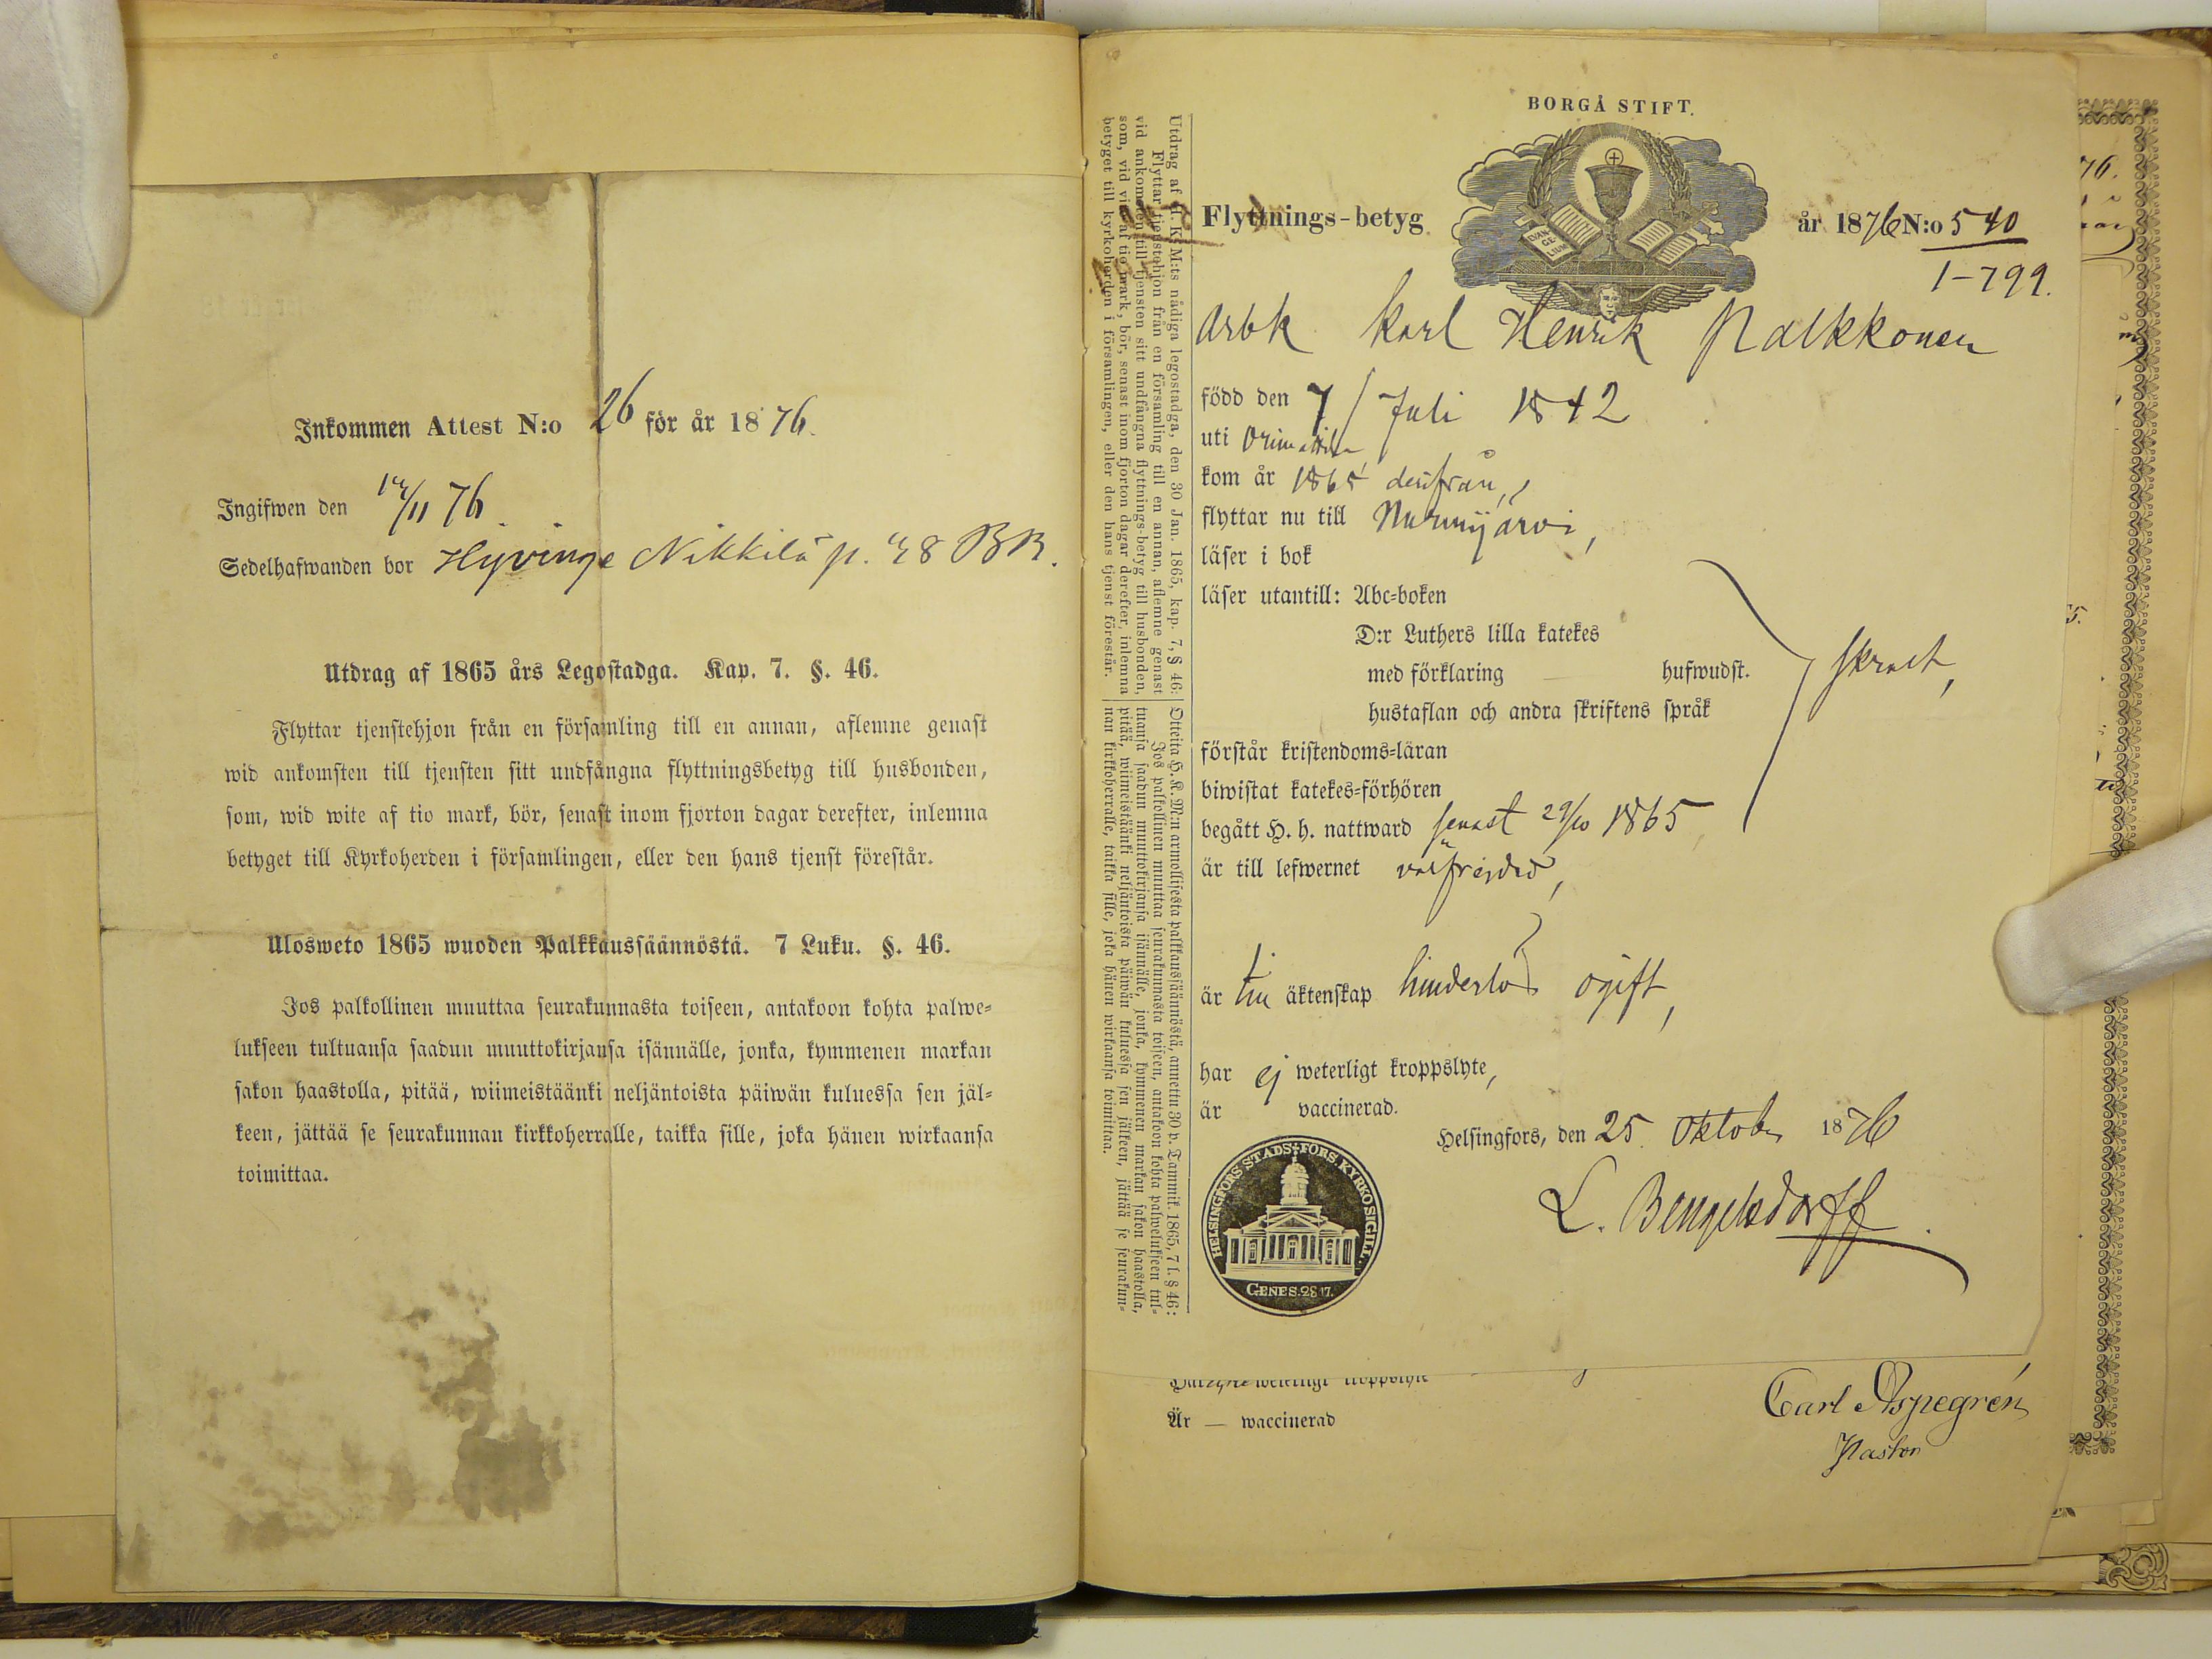 Inkommen Attest N:o 26 för år 1876.
Ingifwen den /11 76.
Sedelhafwanden bor Hyvinge Nikkilä p. 48 BB.
Utdrag af 1865 års Legostadga. Kap. 7. §. 46.
Flyttar tjenstehjon från en församling till en annan, aflemne genast
wid ankomsten till tjensten sitt undfångna flyttningsbetyg till husbonden,
som, wid wite af tio mark, bör, senast inom fjorton dagar derefter, inlemna
betyget till Kyrkoherden i församlingen, eller den hans tjenst förestår.
Ulosweto 1865 wuoden Palkkaussäännöstä. 7 Luku. §. 46.
Jos palkollinen muuttaa seurakunnasta toiseen, antakoon kohta palwe-
lukseen tultuansa saadun muuttokirjansa isännälle, jonka, kymmenen markan
sakon haastolla, pitää, wiimeistäänki neljäntoista päiwän kuluessa sen jäl-
keen, jättää se seurakunnan kirkkoherralle, taikka sille, joka hänen wirkaansa
toimittaa.
Utdrag af H. K. M:ts nådiga legostadga, den 30 Jan. 1865, kap. 7, § 46:
Flyttar tjenstehjon från en församling till en annan, aflemne genast
vid ankomsten till tjensten sitt undfångna flyttnings-betyg till husbonden,
som, vid vite af tio mark, bör, senast inom fjorton dagar derefter, inlemna
betyget till kyrkoherden i församlingen, eller den hans tjenst förestår.
Otteita H. K. M:n armollisesta palkkaussäännöstä, annettu 30 p. Tammik. 1865, 7 l. § 46:
Jos palkollinen muuttaa seurakunnasta toiseen, antakoon kohta palwelukseen tul-
tuansa saadun muuttokirjansa isännälle, jonka, kymmenen markan sakon haastolla,
pitää, wiimeistäänki neljäntoista päiwän kuluessa sen jälkeen, jättää se seurakun-
nan kirkkoherralle, taikka sille, joka hänen wirkaansa toimittaa.
BORGÅ STIFT.
EVAN-
GE
LIUM
Flyttnings-betyg år 1876 N:o 540
1-799.
Arbk Karl Henrik Palkkonen
född den 7/ Juli 1842
uti Orimattila
kom år 1865 derifrån,
flyttar nu till Nurmijärvi,
läser i bok
läser utantill: Abc-boken
D:r Luthers lilla katekes
med förklaring hufwudst.
hustaflan och andra skriftens språk
svagt,
förstår kristendoms-läran
biwistat katekes-förhören
begått H. h. nattward senast 29/10 1865
är till lefwernet välfrejdad,
är till äktenskap hinderlös ogift,
har ej weterligt kroppslyte,
är vaccinerad.
Helsingfors, den 25 Oktober 1876
L. Bengelsdorff
HELSINGFORS STADS FÖRS. KYRKOSIGILL.
GENES. 28 17.
Är — waccinerad
Carl Aspegrén
Pastor
76.